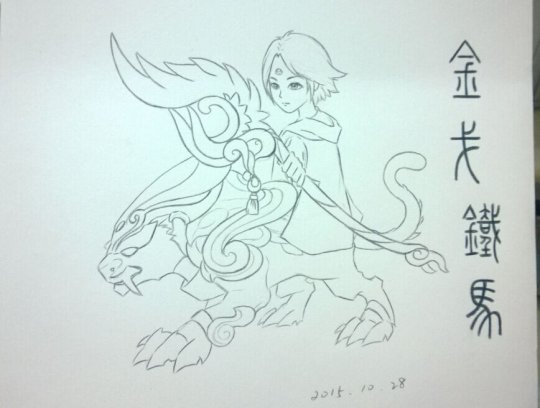 金戈鐵馬
2015.10.28